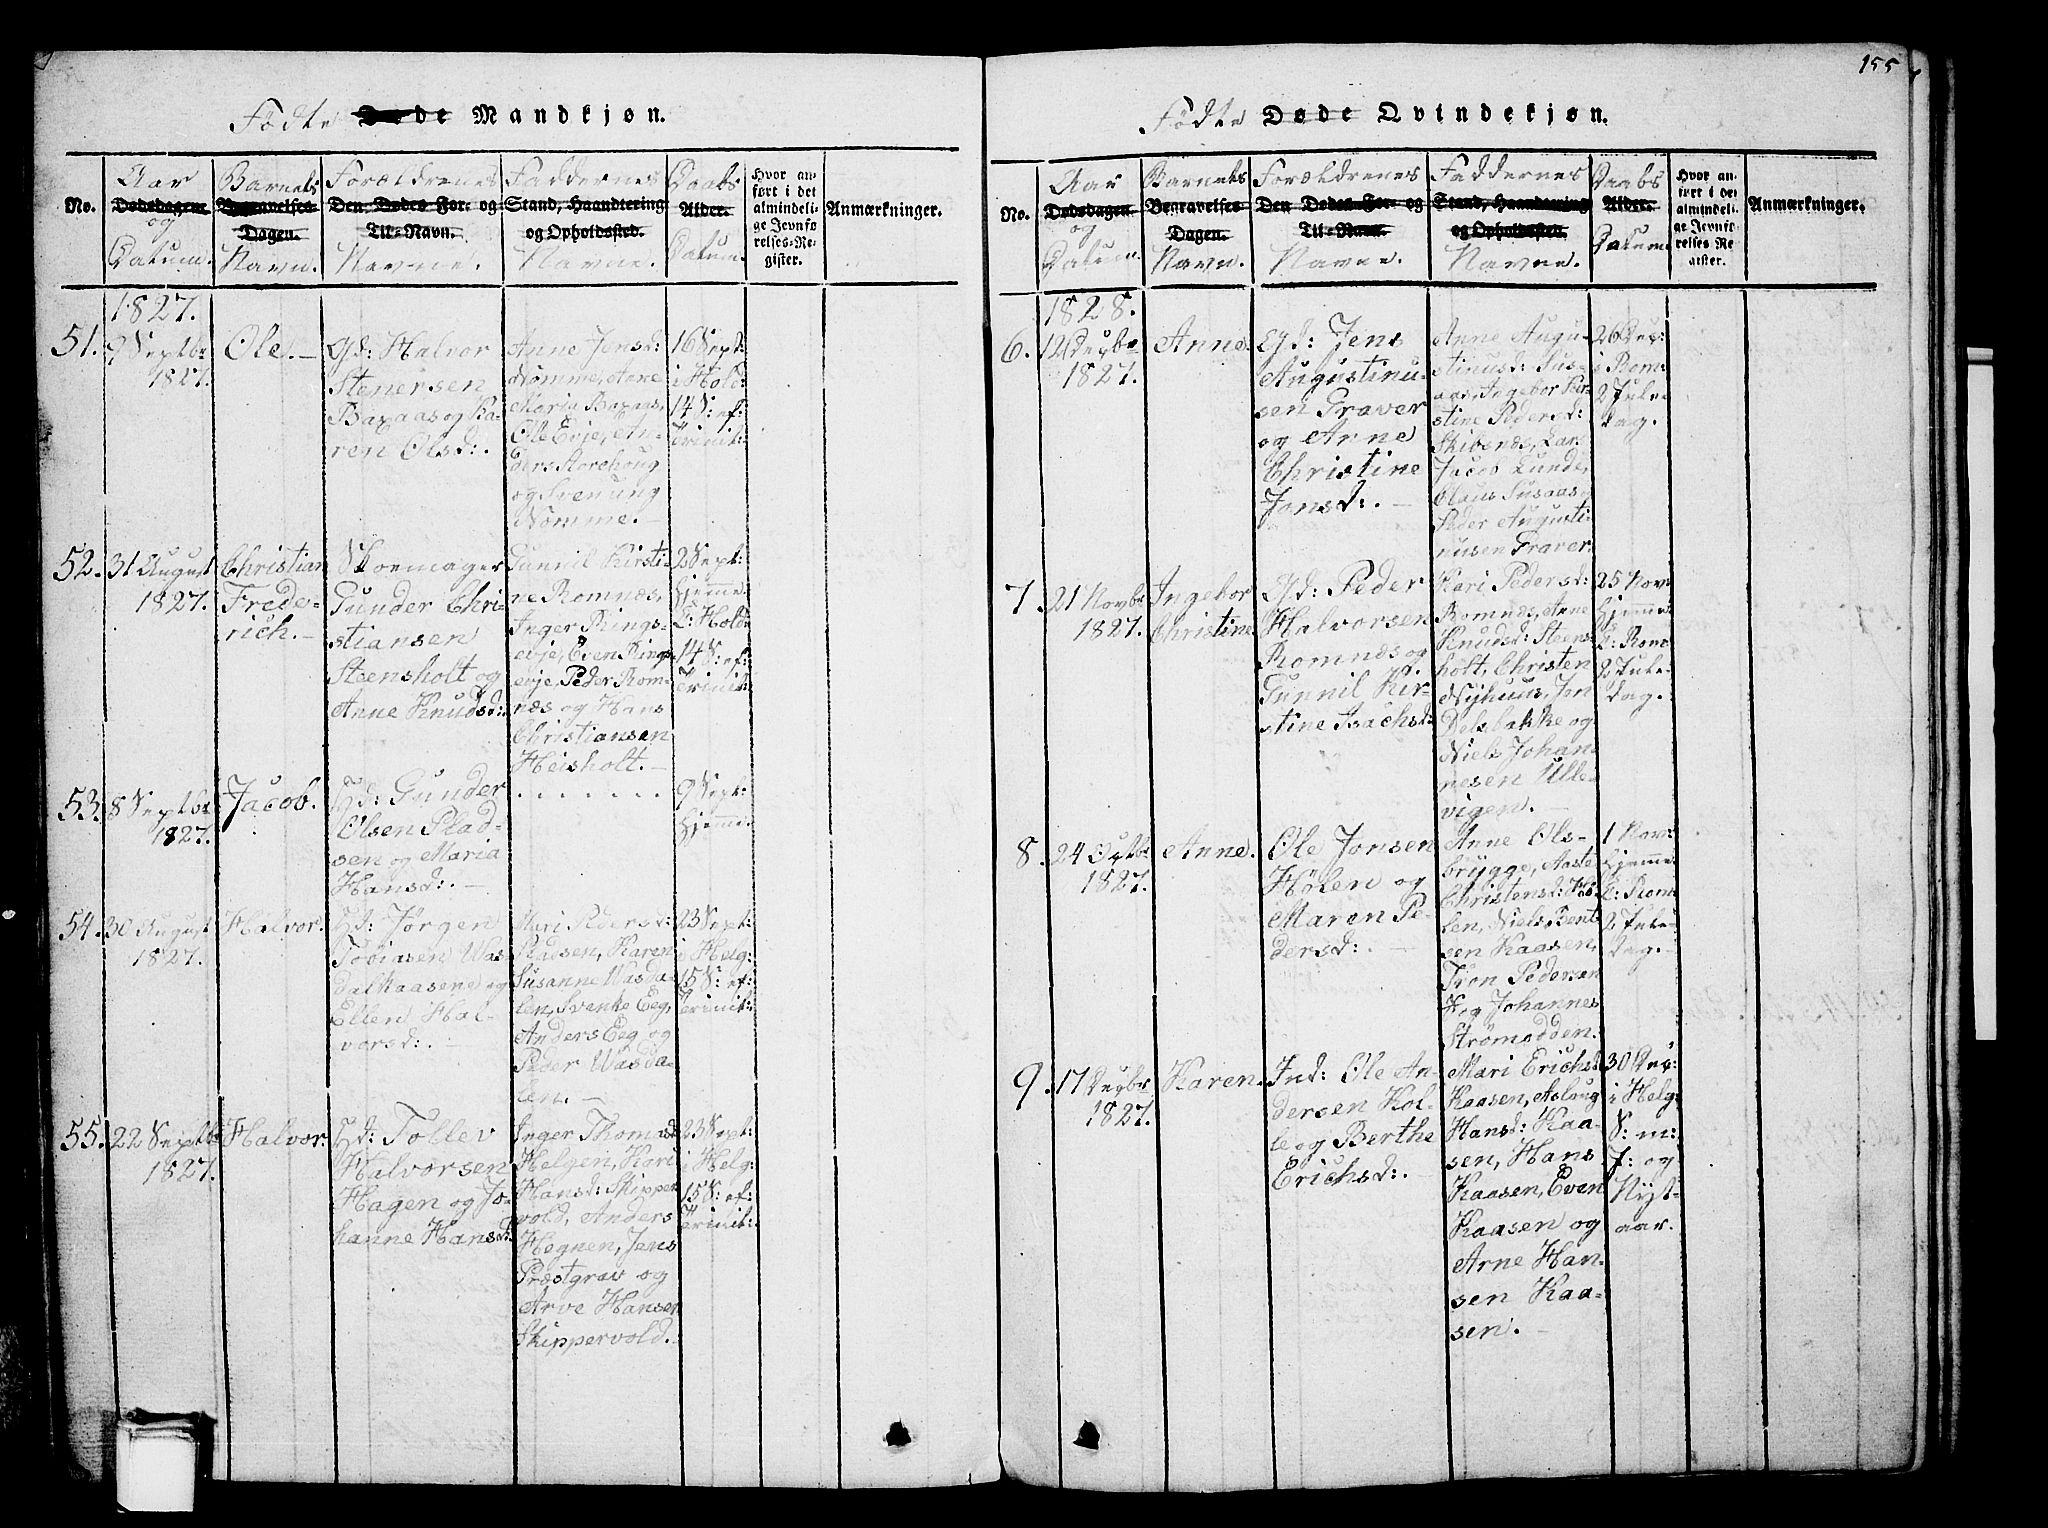 155
Födte Døde Mandkjøn.
No.
Aar
Dødsdagen
og
Datum.
Barnets
Begravelses-
Dagen.
Navn.
Forældrenes
Den Dødes For- og
Til-Navn.
Navne.
Faddernes
Stand, Haandtering
og Opholdssted.
Navne.
Daabs
Alder.
Datum.
Hvor an-
ført i det
almindeli-
ge Jevnfø-
relses-Re-
gister.
Anmærkninger.
1827.
51.
9 Septbr
1827.
Ole. -
Gd: Halvor
Stenersen
Baxaas og Ka-
ren Olsd:.
Anne Jensd:
Nomme, Anne
Maria Baxaas,
Ole Evje, An-
ders Aarehoug
og Svenung
Nomme. -
16 Sept:
i Hold:
14 S: ef:
Trinit:
52.
31 August
1827.
Christian
Frede-
rich. -
Skoemager
Gunder Chri-
stiansen
Steensholt og
Anne Knudsd:
Gunnil Kirsti-
ne Romnæs,
Inger Rings-
evje, Even Rings-
evje, Peder Rom-
næs og Hans
Christiansen
Heisholt. -
2 Sept:
hjemme
C: Hold:
14 S: ef:
Trinit:
53.
8 Septbr
1827.
Jacob.
Hd: Gunder
Olsen Plad-
sen og Maria
Hansd:. -
. . . . . . .
9 Sept:
hjemme
54.
30 August
1827.
Halvor.
Hd: Jørgen
Tobiasen Was-
dalkaasene og
Ellen Hal-
vorsd:. -
Mari Pedersd:
Kaasen, Karen
Susanne Wasda-
len, Svenke Eeg,
Anders Eeg og
Peder Wasda-
len. -
23 Sept:
i Helg:
15 S: ef:
Trinit:
55.
22 Septbr
1827.
Halvor.
Hd: Tollev
Halvorsen
Hagen og Jo-
hanne Hansd:
Inger Thomasd:
Helgen, Kari
Hansd: Skipper-
vold, Anders
Hegnen, Jens
Præstgrav og
Arve Hansen
Skippervold.
23 Sept:
i Helg:
15 S: ef:
Trinit:
Födte Døde Qvindekjøn.
No.
Aar
Dødsdagen
og
Datum.
Barnets
Begravelses
Dagen.
Navn.
Forældrenes
Den Dødes For- og
Til-Navn.
Navne.
Faddernes
Stand, Haandtering
og Opholdssted.
Navne.
Daabs
Alder.
Datum.
Hvor an-
ført i det
almindeli-
ge Jevnfø-
relses Re-
gister.
Anmærkninger.
1828.
6.
12 Decbr
1827.
Anne.
Gd: Jens
Augustinu-
sen Graver
og Anne
Christine
Jonsd:. -
Anne Augu-
stinusd: Sus-
aas, Ingebor Kir-
stine Pedersd:
Skibsnæs, Lars
Jacob Lunde,
Claus Susaas og
Peder Augusti-
nusen Graver.
26 Dec:
i Rom:
2 Jule-
dag.
7.
21 Novbr
1827.
Ingebor
Christine.
Gd: Peder
Halvorsen
Romnæs og
Gunnil Kir-
stine Isachsd:
Kari Pedersd:
Romnæs, Anne
Knudsd: Steens-
holt, Christen
Nyhuus, Jon
Delsbakke og
Niels Johan-
nesen Ulle-
vigen. -
25 Nov:
hjemme
C: Rom
2 Jule-
dag.
8.
24 Octbr
1827.
Anne.
Ole Jonsen
Hølen og
Maren Pe-
dersd:. -
Anne Ols-
brygge, Aaste
Christensd: Hø-
len, Niels Bent-
sen Kaasen,
Tron Pedersen
og Johannes
Strømodden.
1 Nov:
hjemme
C: Rom:
2 Jule-
dag. -
9.
17 Decbr
1827.
Karen.
Ind: Ole An-
dersen Kol-
le og Berthe
Erichsd:. -
Mari Erichsd:
Kaasen, Aslaug
Hansd: Kaa-
sen, Hans
Kaasen, Even
Kaasen og
Arne Han-
sen Kaa-
sen. -
30 Dec:
i Helg:
S: m:
J: og
Nyt-
aar.